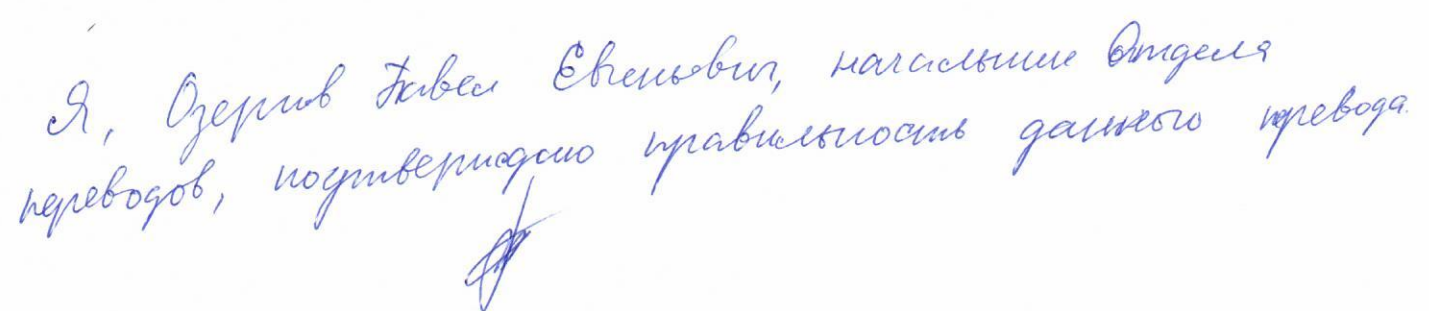 Я, Павел Евгеньевич, начальник Отдела
переводов, подтверждаю правильность данного перевода.